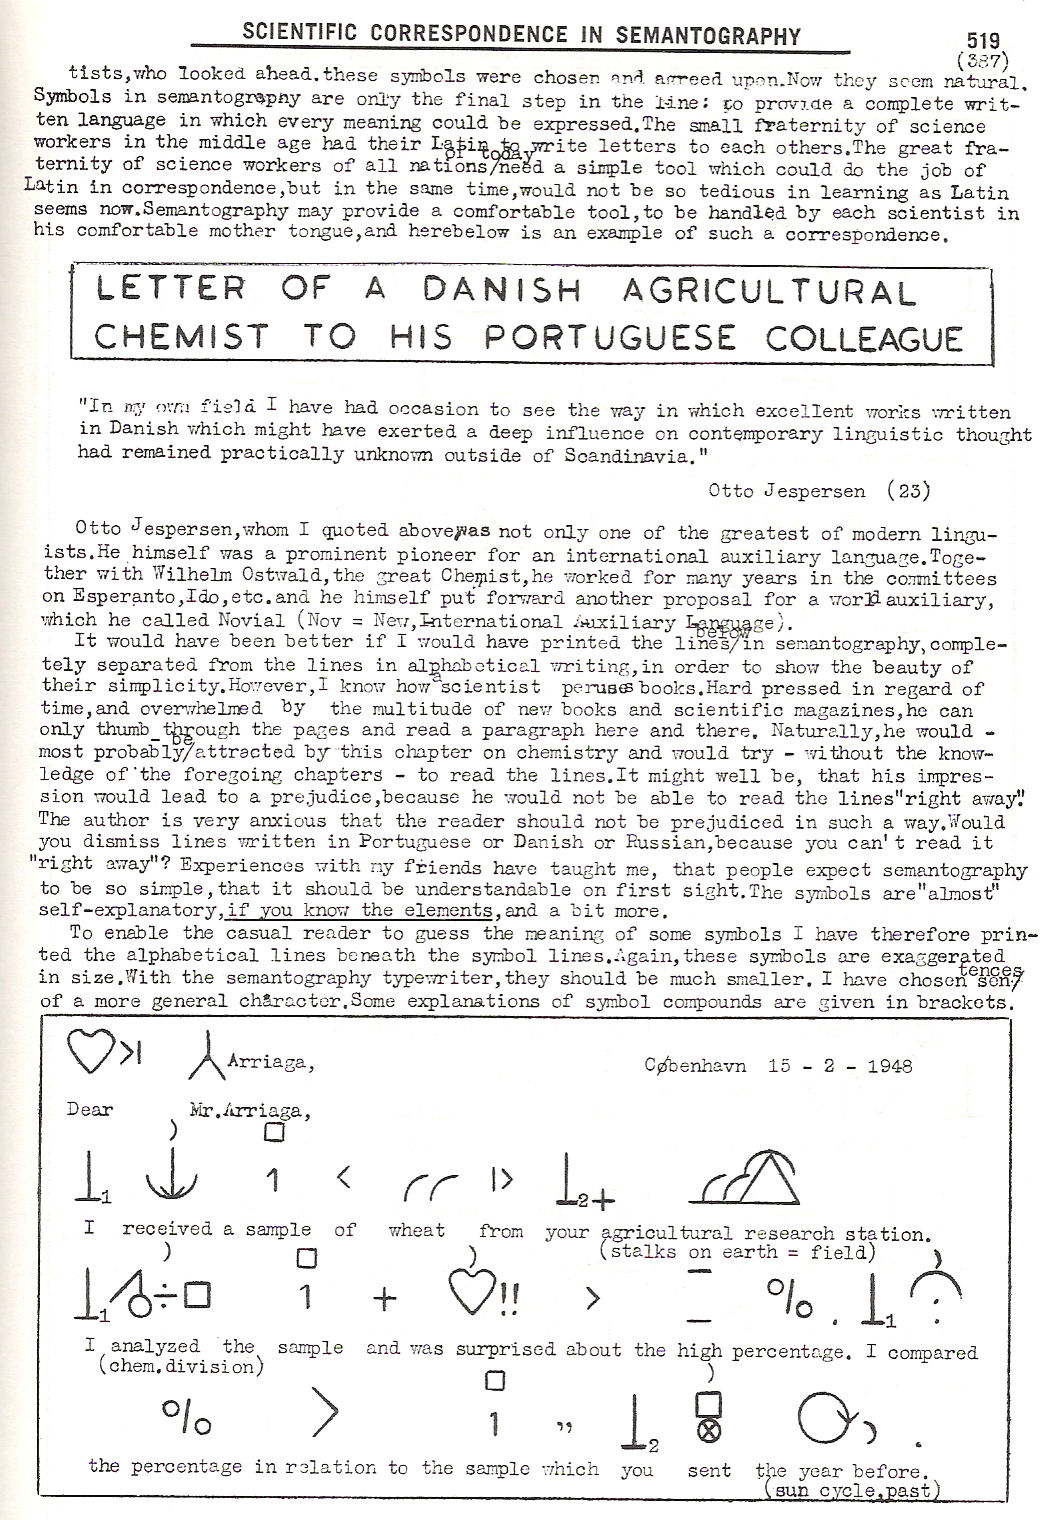 SCIENTIFIC CORRESPONDENCE IN SEMANTOGRAPHY
519
(387)
tists,who looked ahead.these symbols were chosen and agreed upon.Now they seem natural.
Symbols in semantography are only the final step in the line: to provide a complete writ-
ten language in which every meaning could be expressed.The small fraternity of science
workers in the middle age had their Latin to write letters to each others.The great fra-
of today
ternity of science workers of all nations/need a simple tool which could do the job of
Latin in correspondence,but in the same time,would not be so tedious in learning as Latin
seems now.Semantography may provide a comfortable tool,to be handled by each scientist in
his comfortable mother tongue,and herebelow is an example of such a correspondence.
LETTER OF A DANISH AGRICULTURAL
CHEMIST TO HIS PORTUGUESE COLLEAGUE
"In my own field I have had occasion to see the way in which excellent works written
in Danish which might have exerted a deep influence on contemporary linguistic thought
had remained practically unknown outside of Scandinavia."
Otto Jespersen (23)
Otto Jespersen,whom I quoted above,was not only one of the greatest of modern lingu-
ists.He himself was a prominent pioneer for an international auxiliary language.Toge-
ther with Wilhelm Ostwald,the great Chemist,he worked for many years in the committees
on Esperanto,Ido,etc.and he himself put forward another proposal for a world auxiliary,
which he called Novial (Nov = New,International Auxiliary Language).
below
It would have been better if I would have printed the lines/in semantography,comple-
tely separated from the lines in alphabetical writing,in order to show the beauty of
their simplicity.However,I know how a scientist peruses books.Hard pressed in regard of
time,and overwhelmed by the multitude of new books and scientific magazines,he can
only thumb through the pages and read a paragraph here and there. Naturally,he would -
be
most probably/attracted by this chapter on chemistry and would try - without the know-
ledge of the foregoing chapters - to read the lines.It might well be, that his impres-
sion would lead to a prejudice,because he would not be able to read the lines"right away".
The author is very anxious that the reader should not be prejudiced in such a way.Would
you dismiss lines written in Portuguese or Danish or Russian,because you can't read it
"right away"? Experiences with my friends have taught me, that people expect semantography
to be so simple,that it should be understandable on first sight.The symbols are"almost"
self-explanatory,if you know the elements,and a bit more.
To enable the casual reader to guess the meaning of some symbols I have therefore prin-
ted the alphabetical lines beneath the symbol lines.Again,these symbols are exaggerated
in size.With the semantography typewriter,they should be much smaller. I have chosen sen/tences
of a more general character.Some explanations of symbol compounds are given in brackets.
Arriaga,
Cøbenhavn 15 - 2 - 1948
Dear Mr.Arriaga,
1 1 < |> 2+
I received a sample of wheat from your agricultural research station.
(stalks on earth = field)
1 ÷ 1 + !! > % . 1
I analyzed the sample and was surprised about the high percentage. I compared
(chem.division)
% > 1 ,, 2 .
the percentage in relation to the sample which you sent the year before.
(sun cycle,past)